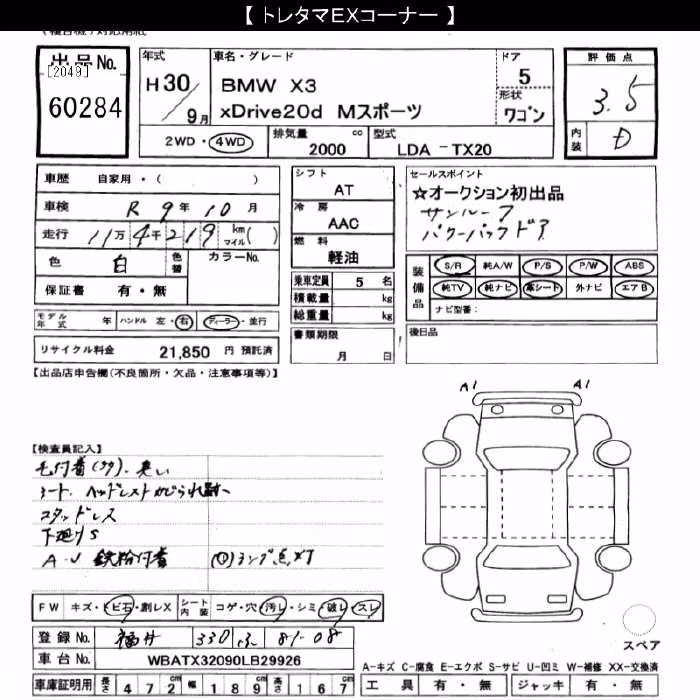 【 トレタマEXコーナー 】
出品No.
[2049]
60284
年式
H30/9月
車名・グレード
BMW X3
xDrive20d Mスポーツ
ドア
5
形状
ワゴン
評価点
3.5
内装
D
2WD・4WD
排気量
2000 cc
型式
LDA-TX20
車歴 自家用・( )
車検 R 9年 10月
走行 11万4千219 km マイル( )
色 白 色替 カラーNo.
保証書 有・無
モデル年式 年 ハンドル 左・右 ディーラー・並行
リサイクル料金 21,850 円 預託済
シフト
AT
冷房
AAC
燃料
軽油
乗車定員 5 名
積載量 kg
総重量 kg
書類期限
月 日
セールスポイント
☆オークション初出品
サンルーフ
パワーバックドア
装備品
S/R 純A/W P/S P/W ABS
純TV 純ナビ 革シート 外ナビ エアB
ナビ型番:
後日品
【出品店申告欄(不良箇所・欠品・注意事項等)】
A1 A1
【検査員記入】
スタッドレス
下廻りS
鉄粉付着
FW キズ・トビ石・割レX シート内装 コゲ・穴・汚レ・シミ・破レ・スレ
登録No. 福井 330 ふ 81-08
車台No. WBATX32090LB29926
車庫証明用 長さ 472cm 幅 189cm 高さ 167cm
スペア
A-キズ C-腐食 E-エクボ S-サビ U-凹ミ W-補修 XX-交換済
工具 有・無 ジャッキ 有・無